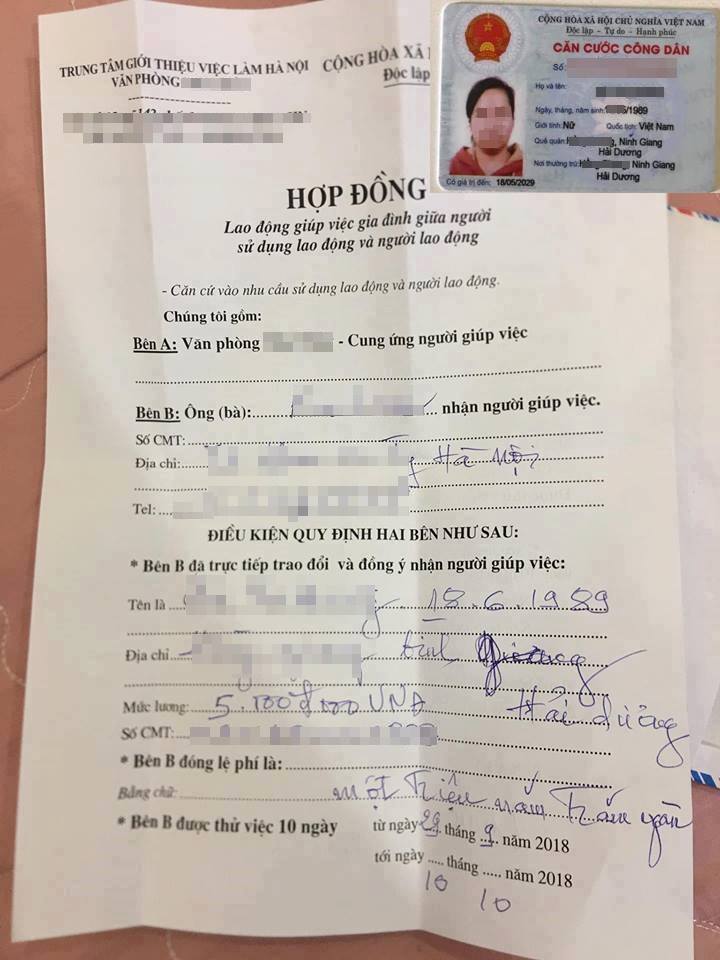 TRUNG TÂM GIỚI THIỆU VIỆC LÀM HÀ NỘI
VĂN PHÒNG
CỘNG HÒA XÃ
Độc lập
CỘNG HÒA XÃ HỘI CHỦ NGHĨA VIỆT NAM
Độc lập - Tự do - Hạnh phúc
CĂN CƯỚC CÔNG DÂN
Số:
Họ và tên:
Ngày, tháng, năm sinh: /1989
Giới tính: Nữ Quốc tịch: Việt Nam
Quê quán: , Ninh Giang
Hải Dương
Nơi thường trú: Ninh Giang
Hải Dương
Có giá trị đến: 18/05/2029
HỢP ĐỒNG
Lao động giúp việc gia đình giữa người
sử dụng lao động và người lao động
- Căn cứ vào nhu cầu sử dụng lao động và người lao động.
Chúng tôi gồm:
Bên A: Văn phòng - Cung ứng người giúp việc
Bên B: Ông (bà): nhận người giúp việc.
Số CMT:
Địa chỉ: Hà Nội
Tel:
ĐIỀU KIỆN QUY ĐỊNH HAI BÊN NHƯ SAU:
* Bên B đã trực tiếp trao đổi và đồng ý nhận người giúp việc:
Tên là 18.6.1989
Địa chỉ
Hải dương
Mức lương: VNĐ
Số CMT:
* Bên B đóng lệ phí là:
Bằng chữ: một triệu năm trăm ngàn
* Bên B được thử việc 10 ngày từ ngày 29 tháng 9 năm 2018
tới ngày ..... tháng ..... năm 2018
10 10